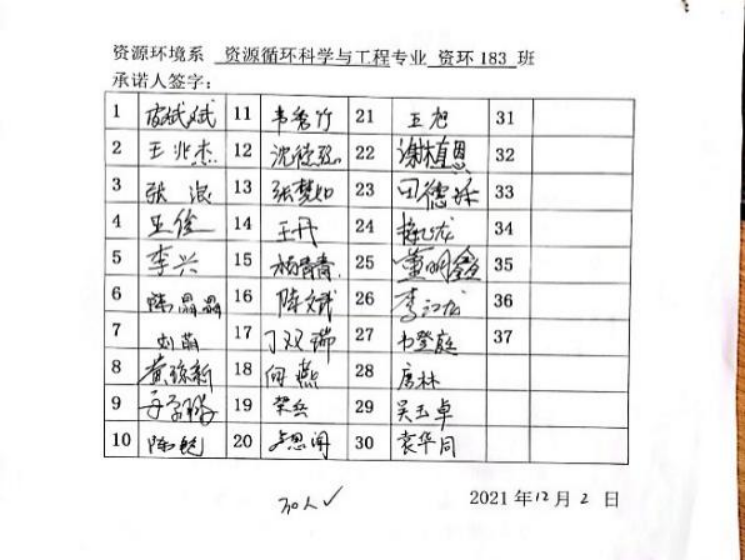 资源环境系 资源循环科学与工程专业 资环 183 班
承诺人签字：
1 皮斌斌 11 韦秀竹 21 王旭 31
2 王兆杰 12 沈德强 22 谢植恩 32
3 张浪 13 张梦如 23 田德 33
4 王俊 14 王丹 24 龙 34
5 李兴 15 杨青青 25 董明鑫 35
6 陈晶晶 16 陈斌 26 李江龙 36
7 刘萌 17 丁双瑞 27 登庭 37
8 黄新 18 何燕 28 唐林
9 19 荣兵 29 吴玉卓
10 陈艳 20 孟思闻 30 袁华同
30人✓
2021 年 12 月 2 日